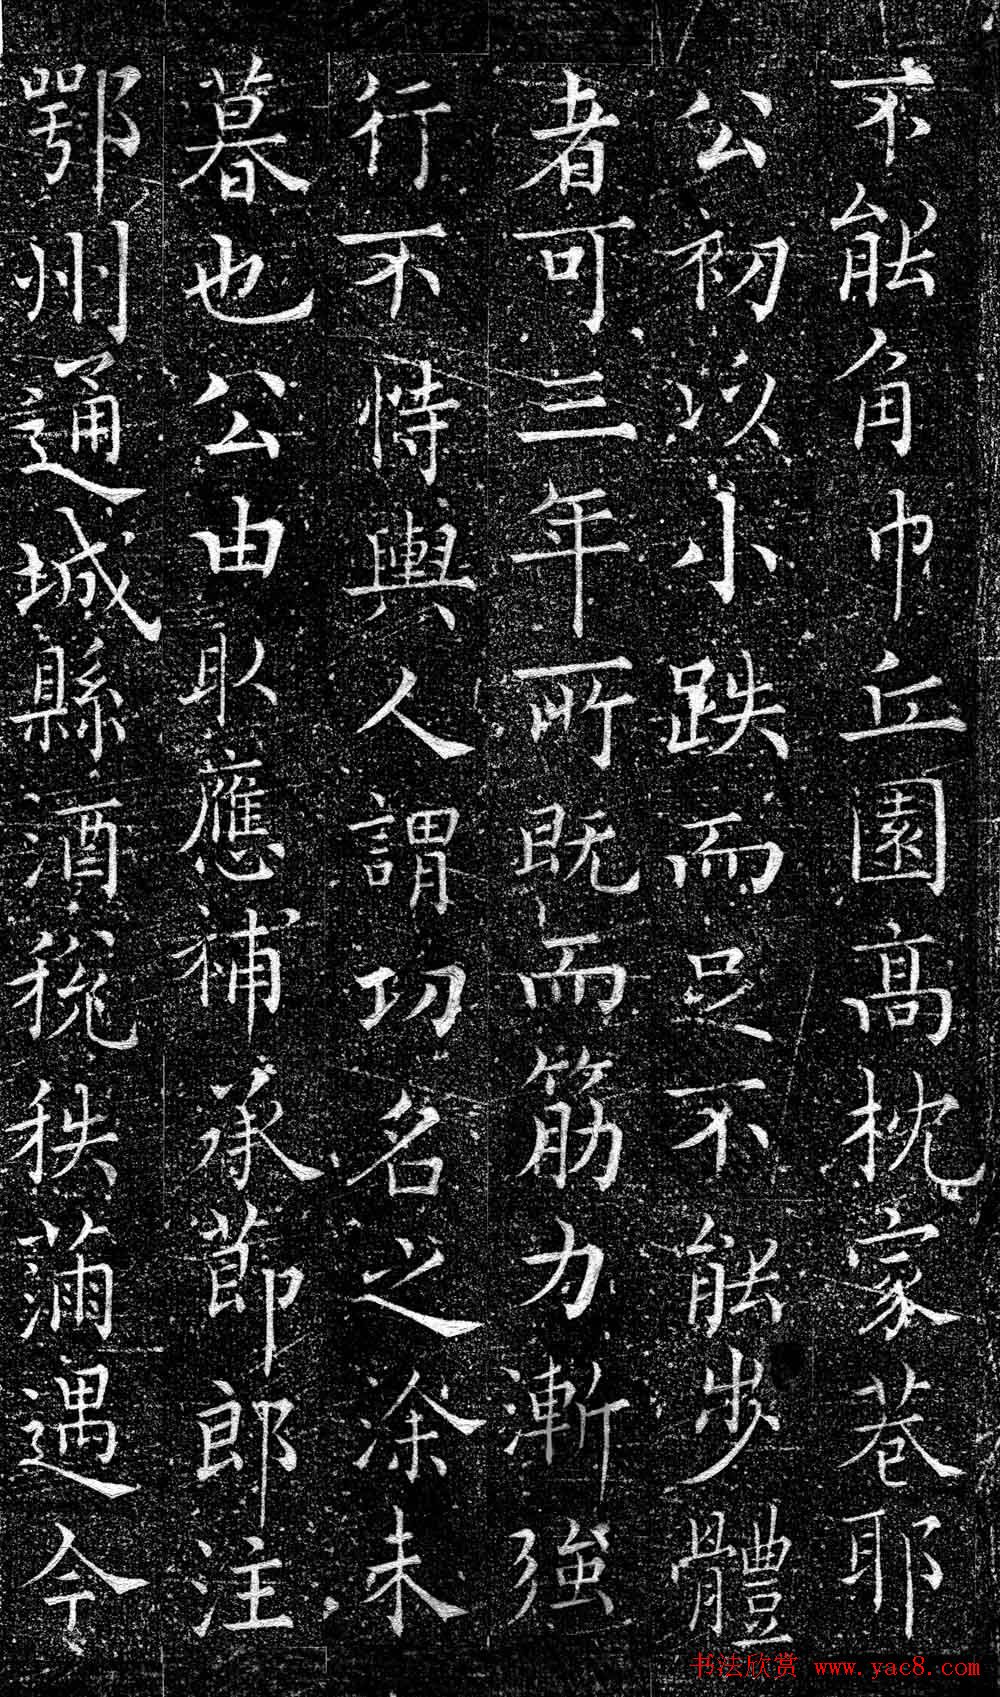 不能角巾丘園高枕家巷耶
公初以小跌而足不能步體
者可三年所既而筋力漸強
行不恃輿人謂功名之涂未
暮也公由取應補承莭郎注
鄂州通城縣酒稅秩滿遇今
书法欣赏 www.yac8.com